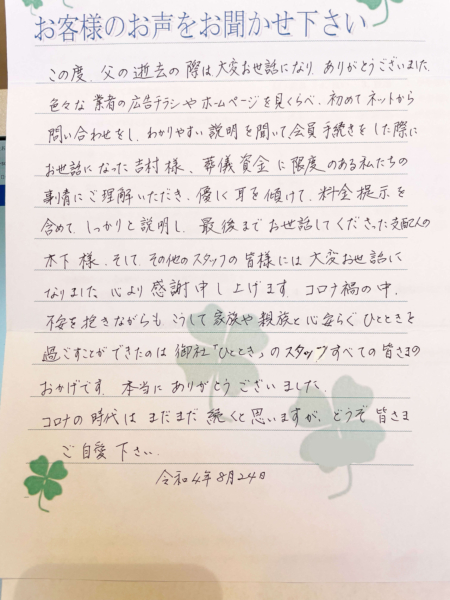 お客様のお声をお聞かせ下さい
この度、父の逝去の際は大変お世話になり、ありがとうございました。
色々な業者の広告チラシやホームページを見くらべ、初めてネットから
問い合わせをし、わかりやすい説明を聞いて、会員手続きをした際に
お世話になった吉村様、葬儀資金に限度のある私たちの
事情にご理解いただき、優しく耳を傾けて、料金提示を
含めて、しっかりと説明し、最後までお世話してくださった支配人の
木下様、そして、その他のスタッフの皆様には大変お世話に
なりました。心より感謝申し上げます。コロナ禍の中、
不安を抱きながらも、こうして家族や親族と心安らぐひとときを
過ごすことができたのは御社「ひととき」のスタッフすべての皆さまの
おかげです。本当にありがとうございました。
コロナの時代はまだまだ続くと思いますが、どうぞ皆さま
ご自愛下さい。
令和4年8月24日